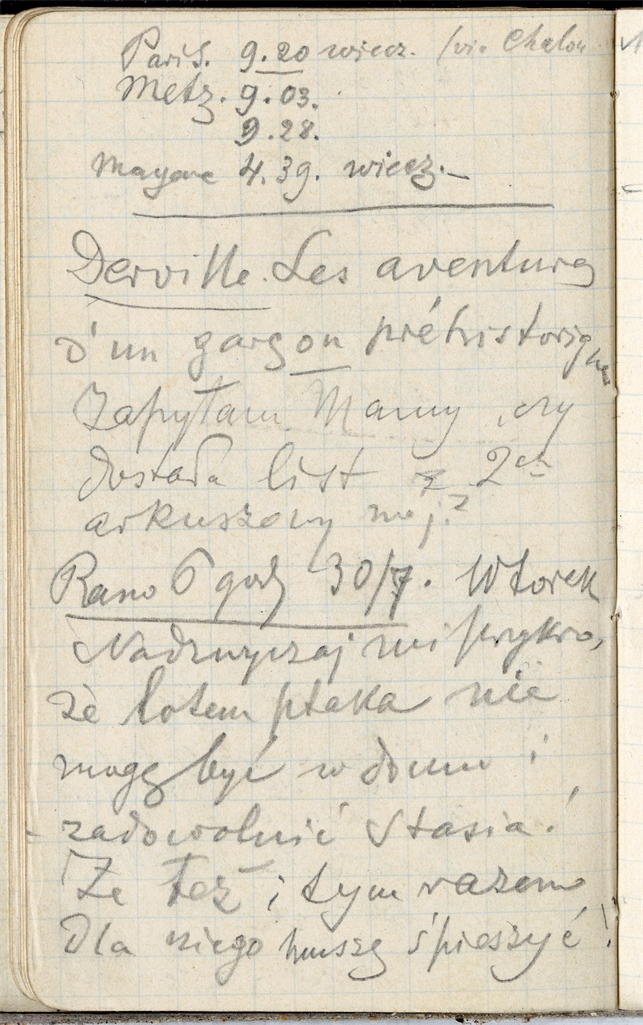 Paris. 9.20 wiecz. (via Chalon
Metz. 9.03.
9.28.
Mayence 4.39. wiecz.—
Derville. Les aventures
d'un garçon préhistorique
Zapytam Mamy, czy
dostała list z 2ch
arkuszowy mój?
Rano 6 godz 30/7. Wtorek
Nadzwyczaj mi przykro,
że lotem ptaka nie
mogę być w domu i
zadowolnić Stasia!
Że też i tym razem
dla niego muszę śpieszyć!